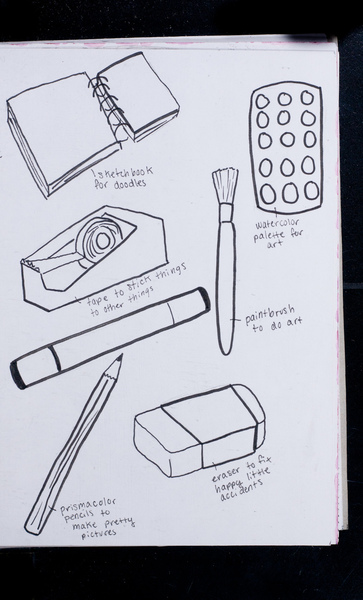 sketchbook
for doodles
watercolor
palette for
art
tape to stick things
to other things
paintbrush
to do art
eraser to fix
happy little
accidents
prismacolor
pencils to
make pretty
pictures